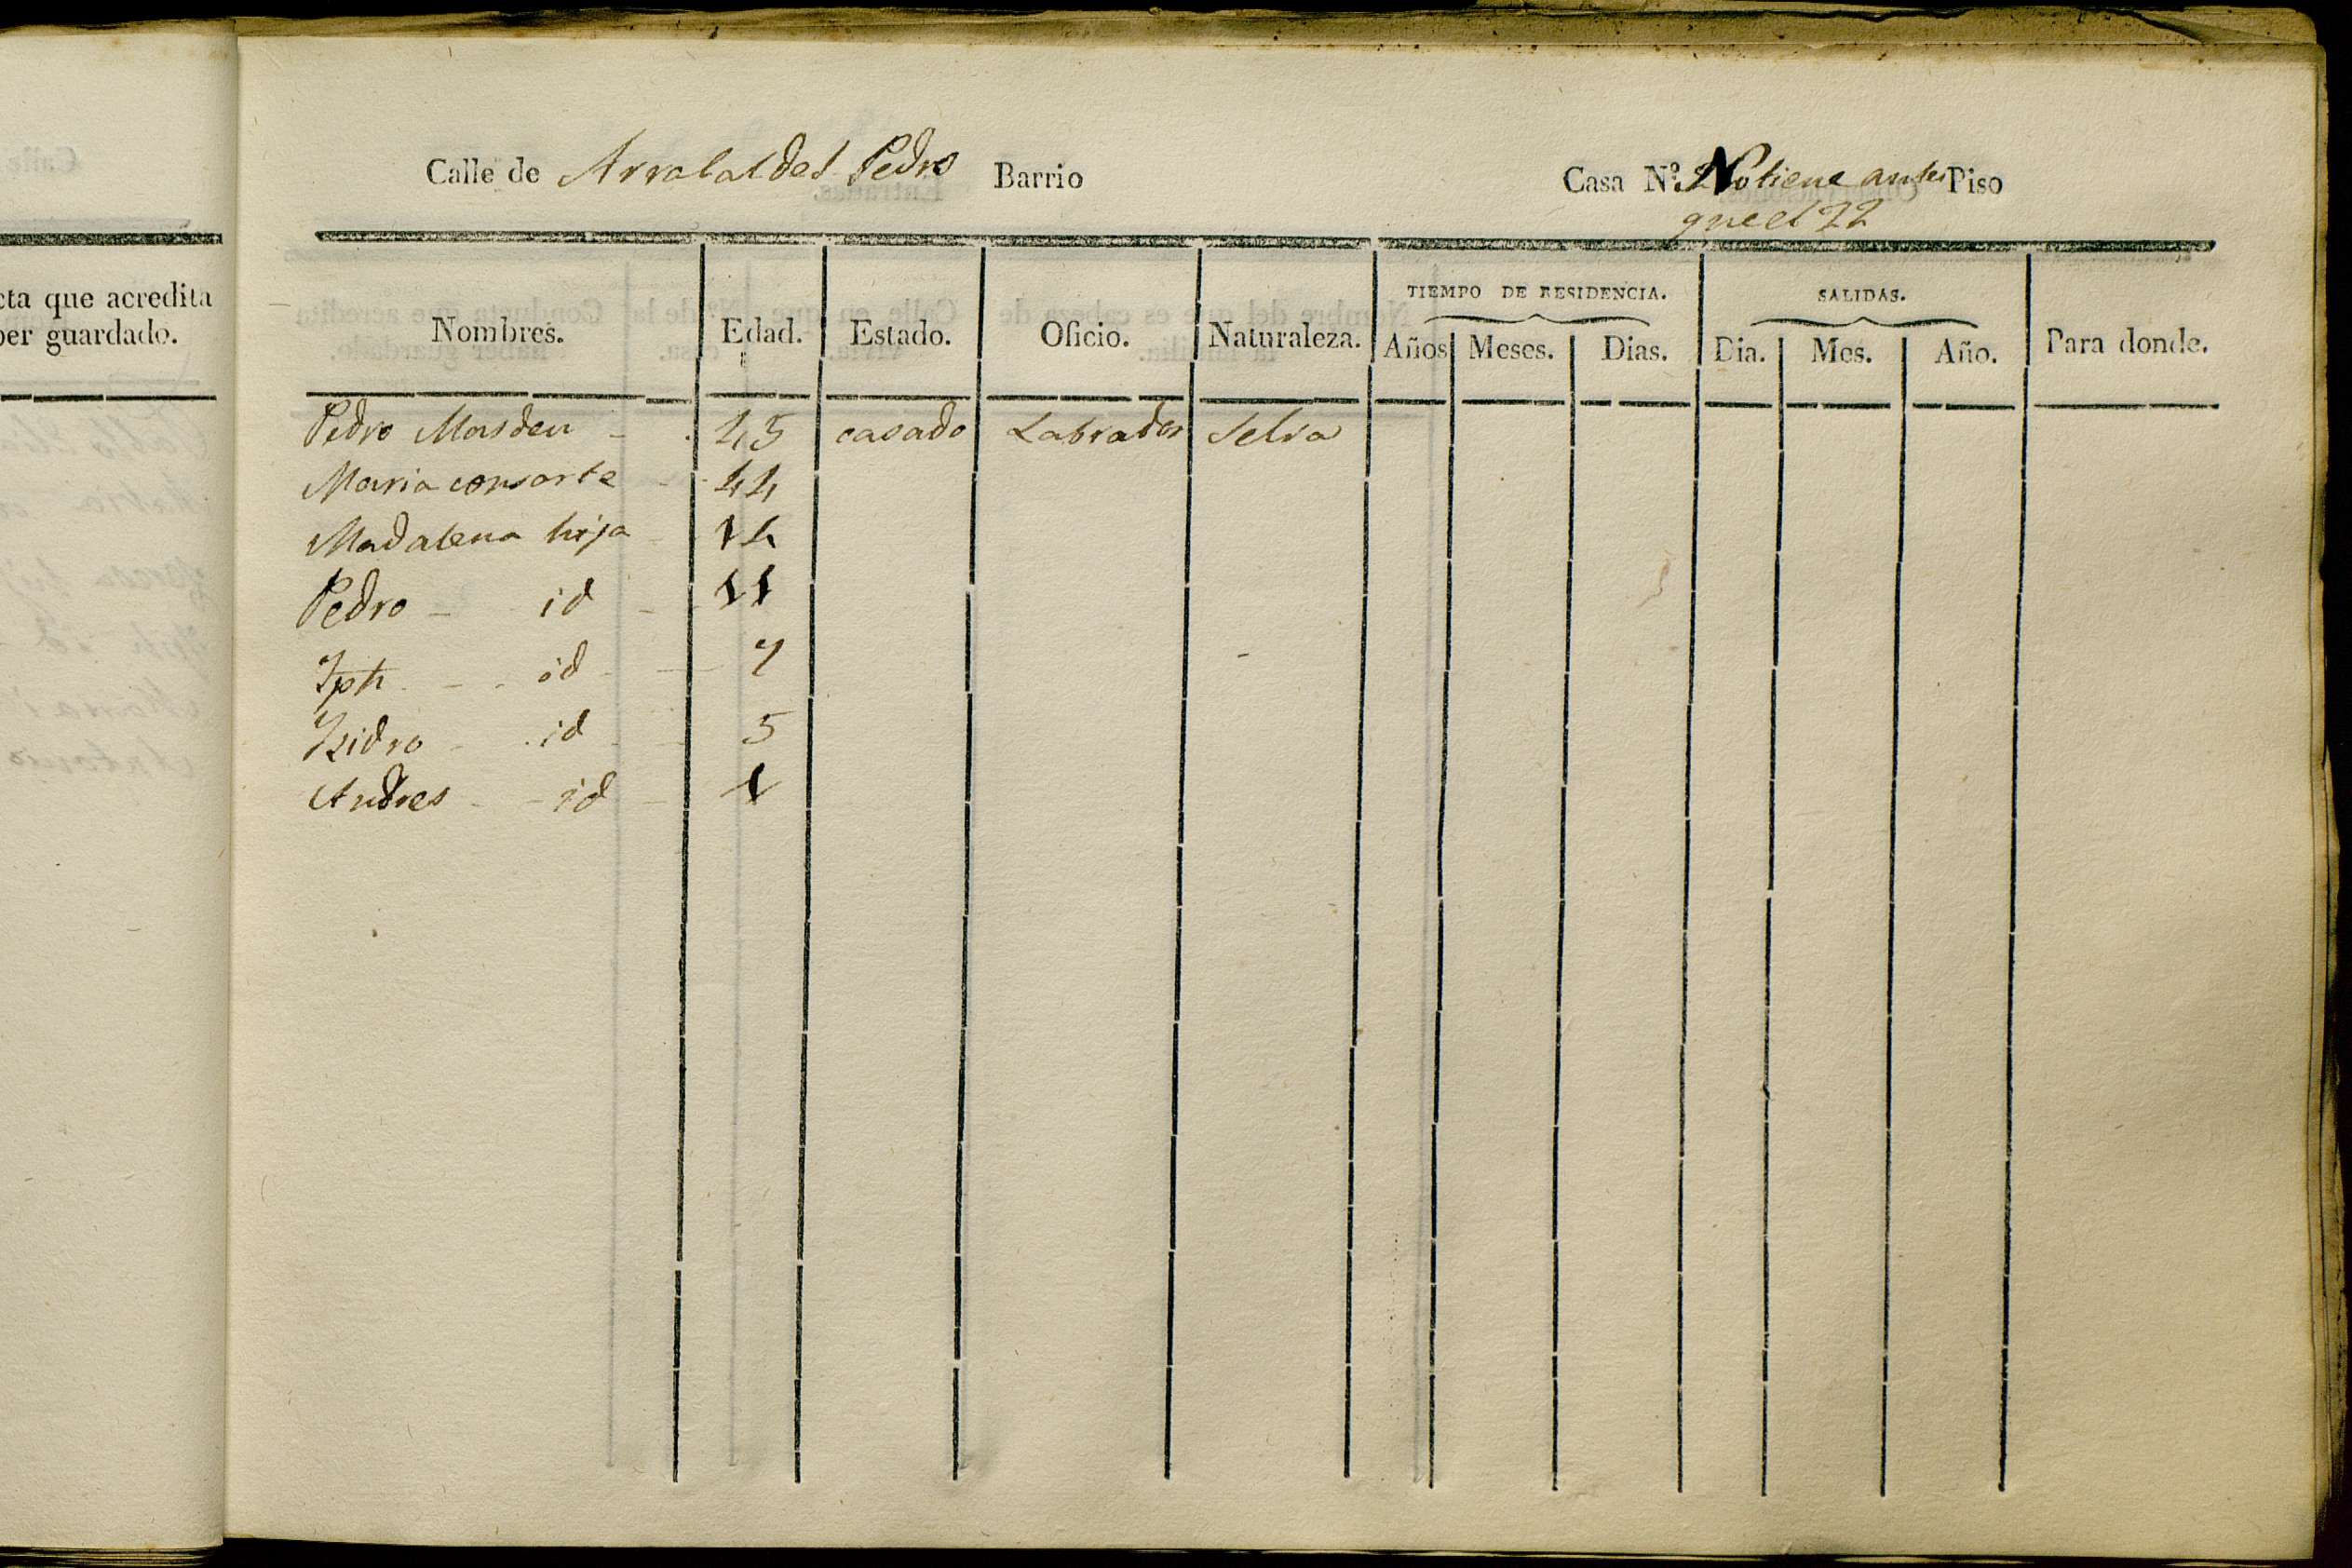 cta que acredita
ber guardado.
Calle de Arrabal de S. Pedro Barrio Casa N.º No tiene antes Piso
que el 22
Nombres. Edad. Estado. Oficio. Naturaleza. TIEMPO DE RESIDENCIA. SALIDAS. Para donde.
Años Meses. Dias. Dia. Mes. Año.
Pedro Masdeu 45 casado Labrador Selva
Maria consorte 44
Madalena hija 14
Pedro id 11
Jph id 7
Isidro id 5
Andres id 1